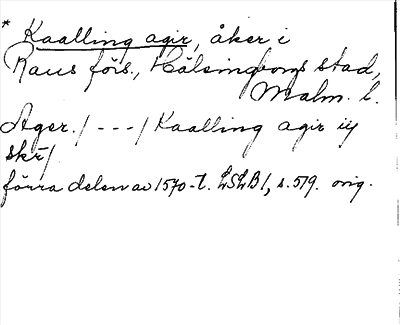 * Kaalling agir, åker i
Raus förs., Hälsingborgs stad,
Malm. l.
Ager. / - - - / Kaalling agir iij
skr̄ /
förra delen av 1570-t. LSLB 1, s. 579. orig.